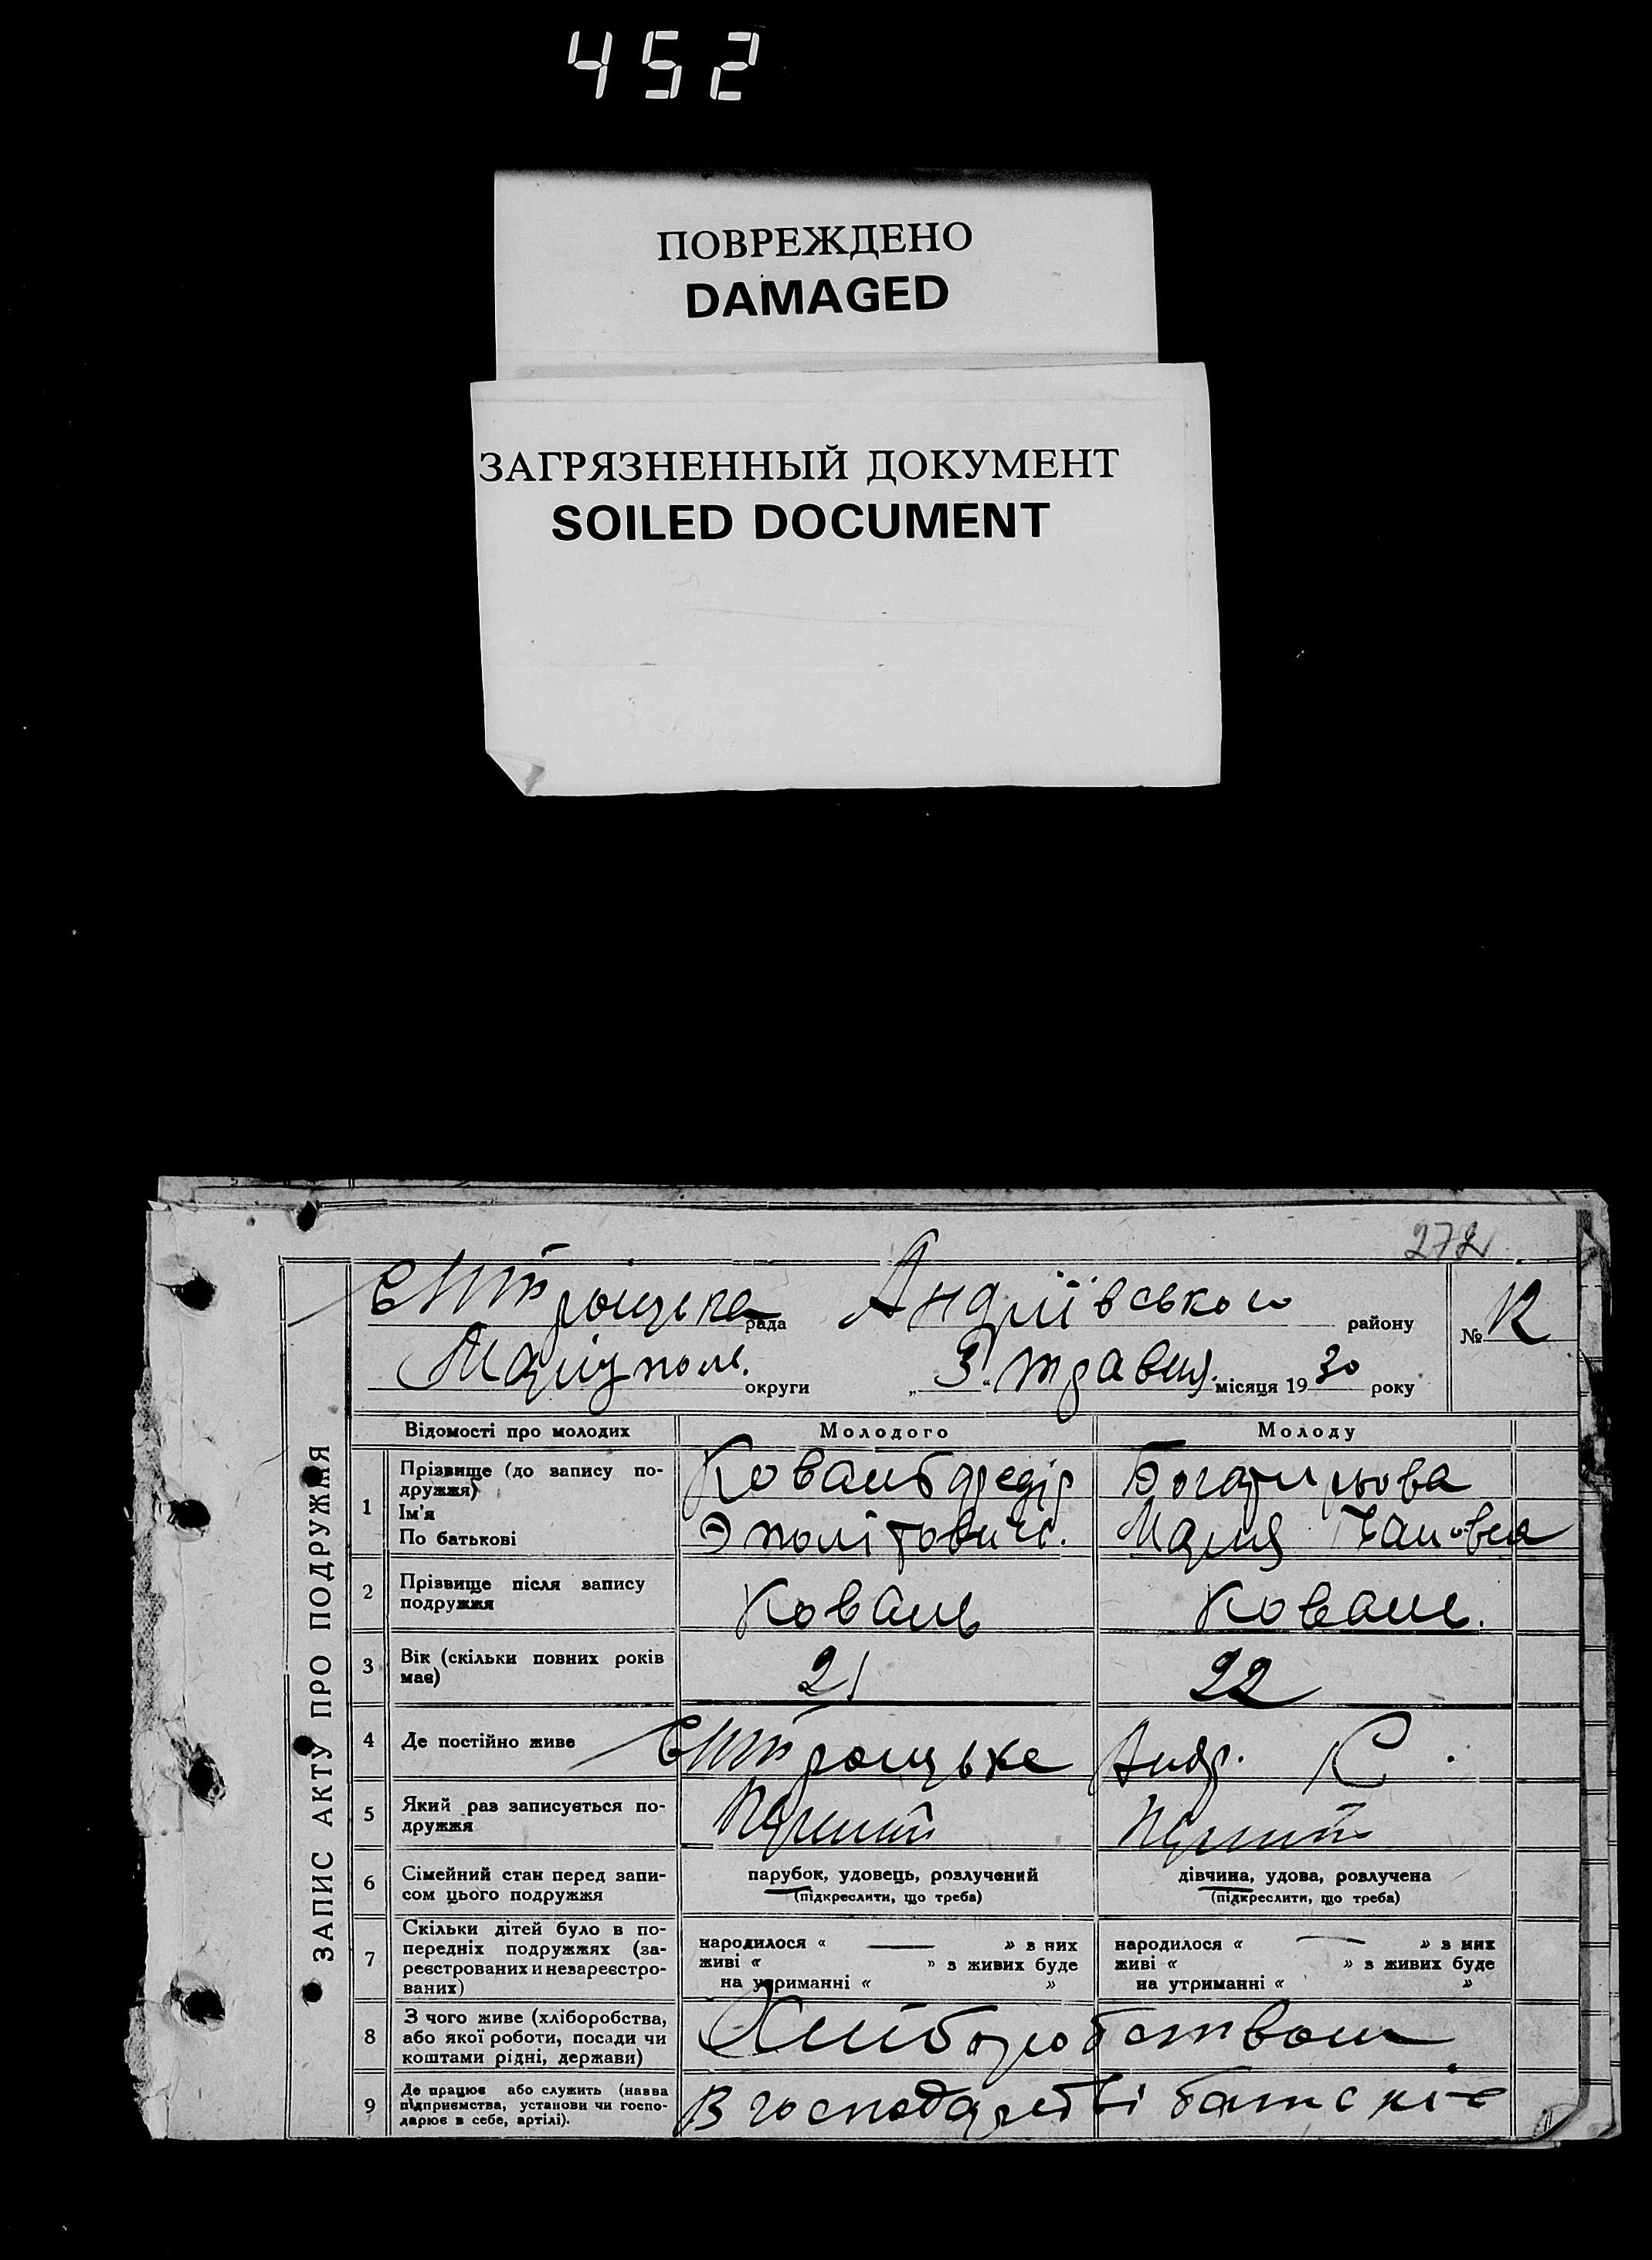 452
ПОВРЕЖДЕНО
DAMAGED
ЗАГРЯЗНЕННЫЙ ДОКУМЕНТ
SOILED DOCUMENT
272
рада Андріївського району № 12
Маріуполь. округи „ 3 “ травня. місяця 19 30 року
ЗАПИС АКТУ ПРО ПОДРУЖЖЯ
Відомості про молодих Молодого Молоду
1 Прізвище (до запису по-
дружжя)
Ім'я
По батькові
Ковань Федір
Эполітович.
Богатирьова
Мария Івановна
2 Прізвище після запису
подружжя
Ковань Ковань.
3 Вік (скільки повних років
має)
21 22
4 Де постійно живе
Андр. К.
5 Який раз записується по-
дружжя
Перший Перший
6 Сімейний стан перед запи-
сом цього подружжя
парубок, удовець, розлучений
(підкреслити, що треба)
дівчина, удова, розлучена
(підкреслити, що треба)
7 Скільки дітей було в по-
передніх подружжях (за-
реєстрованих и незареєстро-
ваних)
народилося « — » з них
живі « » з живих буде
на утриманні « »
народилося « — » з них
живі « » з живих буде
на утриманні « »
8 З чого живе (хліборобства,
або якої роботи, посади чи
коштами рідні, держави)
Хліборобством
9 Де працює або служить (назва
підприємства, установи чи госпо-
дарює в себе, артілі).
В господарстві